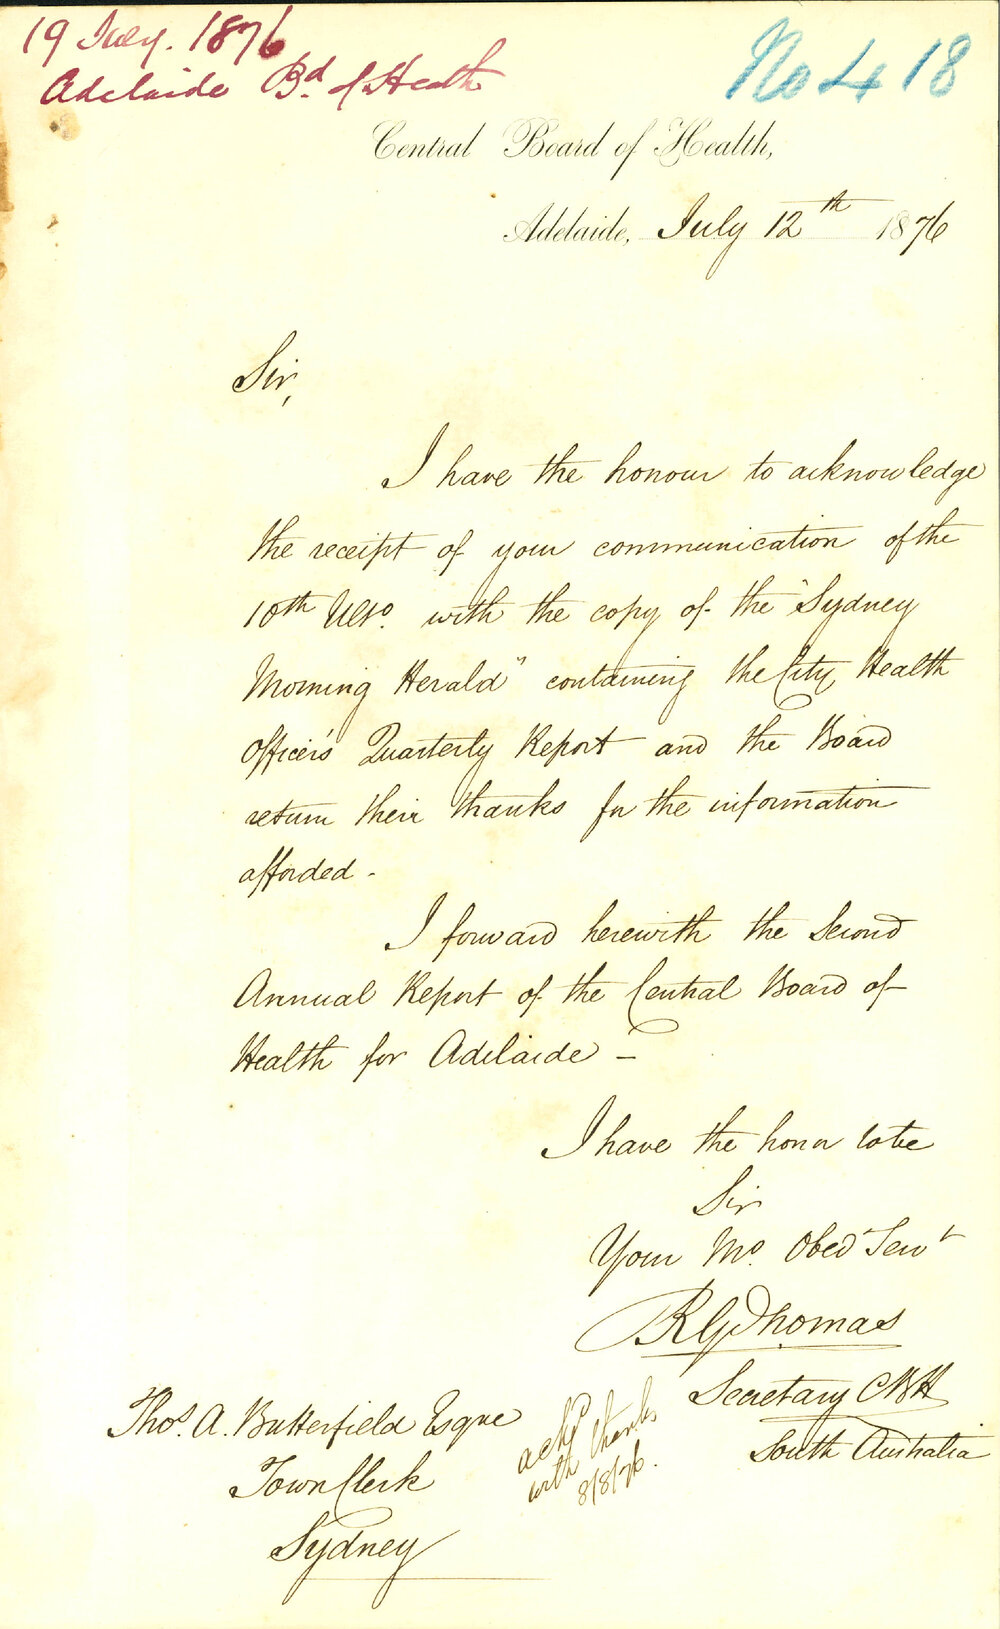 19 July. 1876
Adelaide Bd. of Health
No 418
Central Board of Health,
Adelaide, July 12th 1876
Sir,
I have the honour to acknowledge
the receipt of your communication of the
10th Ulto. with the copy of the "Sydney
Morning Herald" containing the City Health
Officer's Quarterly Report and the Board
return their thanks for the information
afforded -
I forward herewith the Second
Annual Report of the Central Board of
Health for Adelaide -
I have the honor to be
Sir
Your Mo. Obed Servt
R G Thomas
Secretary CBH
South Australia
Thos. A. Butterfield Esque
Town Clerk
Sydney
ackd
with thanks
8/8/76.